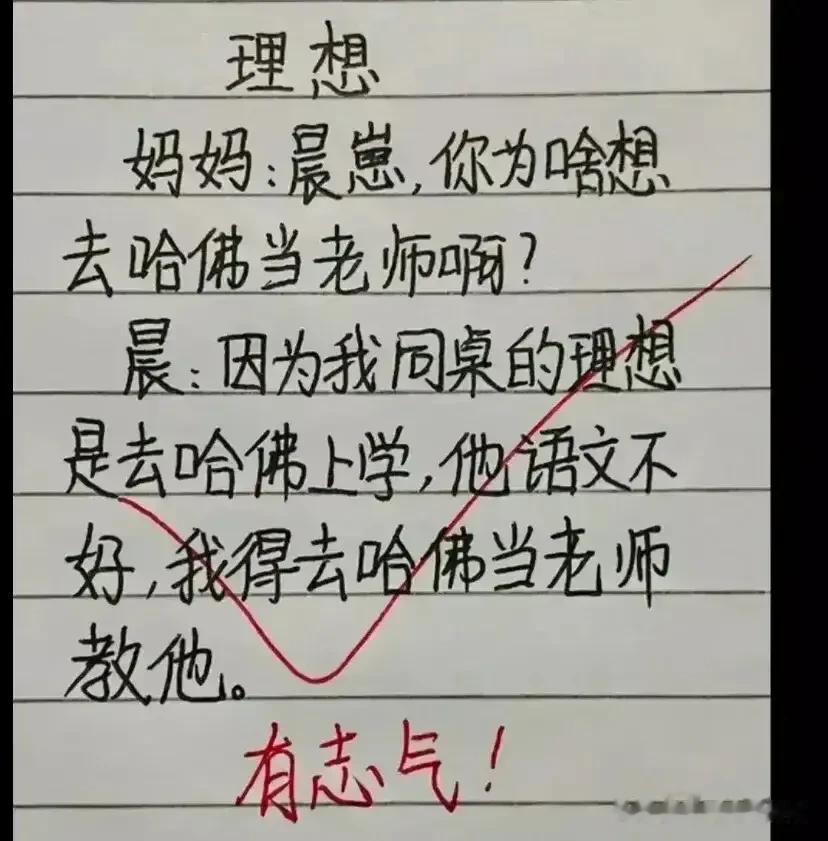 理想
妈妈:晨崽,你为啥想
去哈佛当老师啊?
晨:因为我同桌的理想
是去哈佛上学,他语文不
好,我得去哈佛当老师
教他。
有志气!